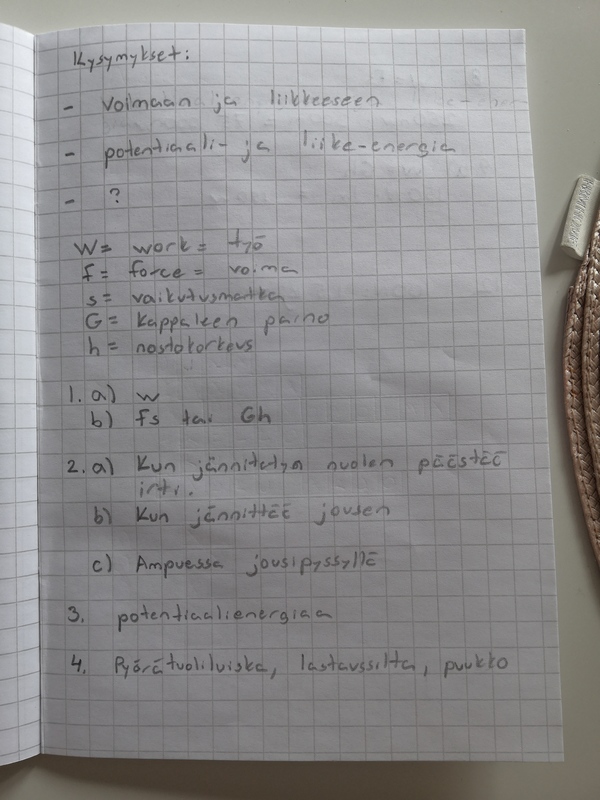 Kysymykset:
- voimaan ja liikkeeseen
- potentiaali- ja liike-energia
- ?
W= work= työ
f= force= voima
s= vaikutusmatka
G= kappaleen paino
h= nostokorkeus
1. a) W
b) fs tai Gh
2. a) Kun jännitetyn nuolen päästää
irti.
b) Kun jännittää jousen
c) Ampuessa jousipyssyllä
3. potentiaalienergiaa
4. Pyörätuoliluiska, lastaussilta, puukko